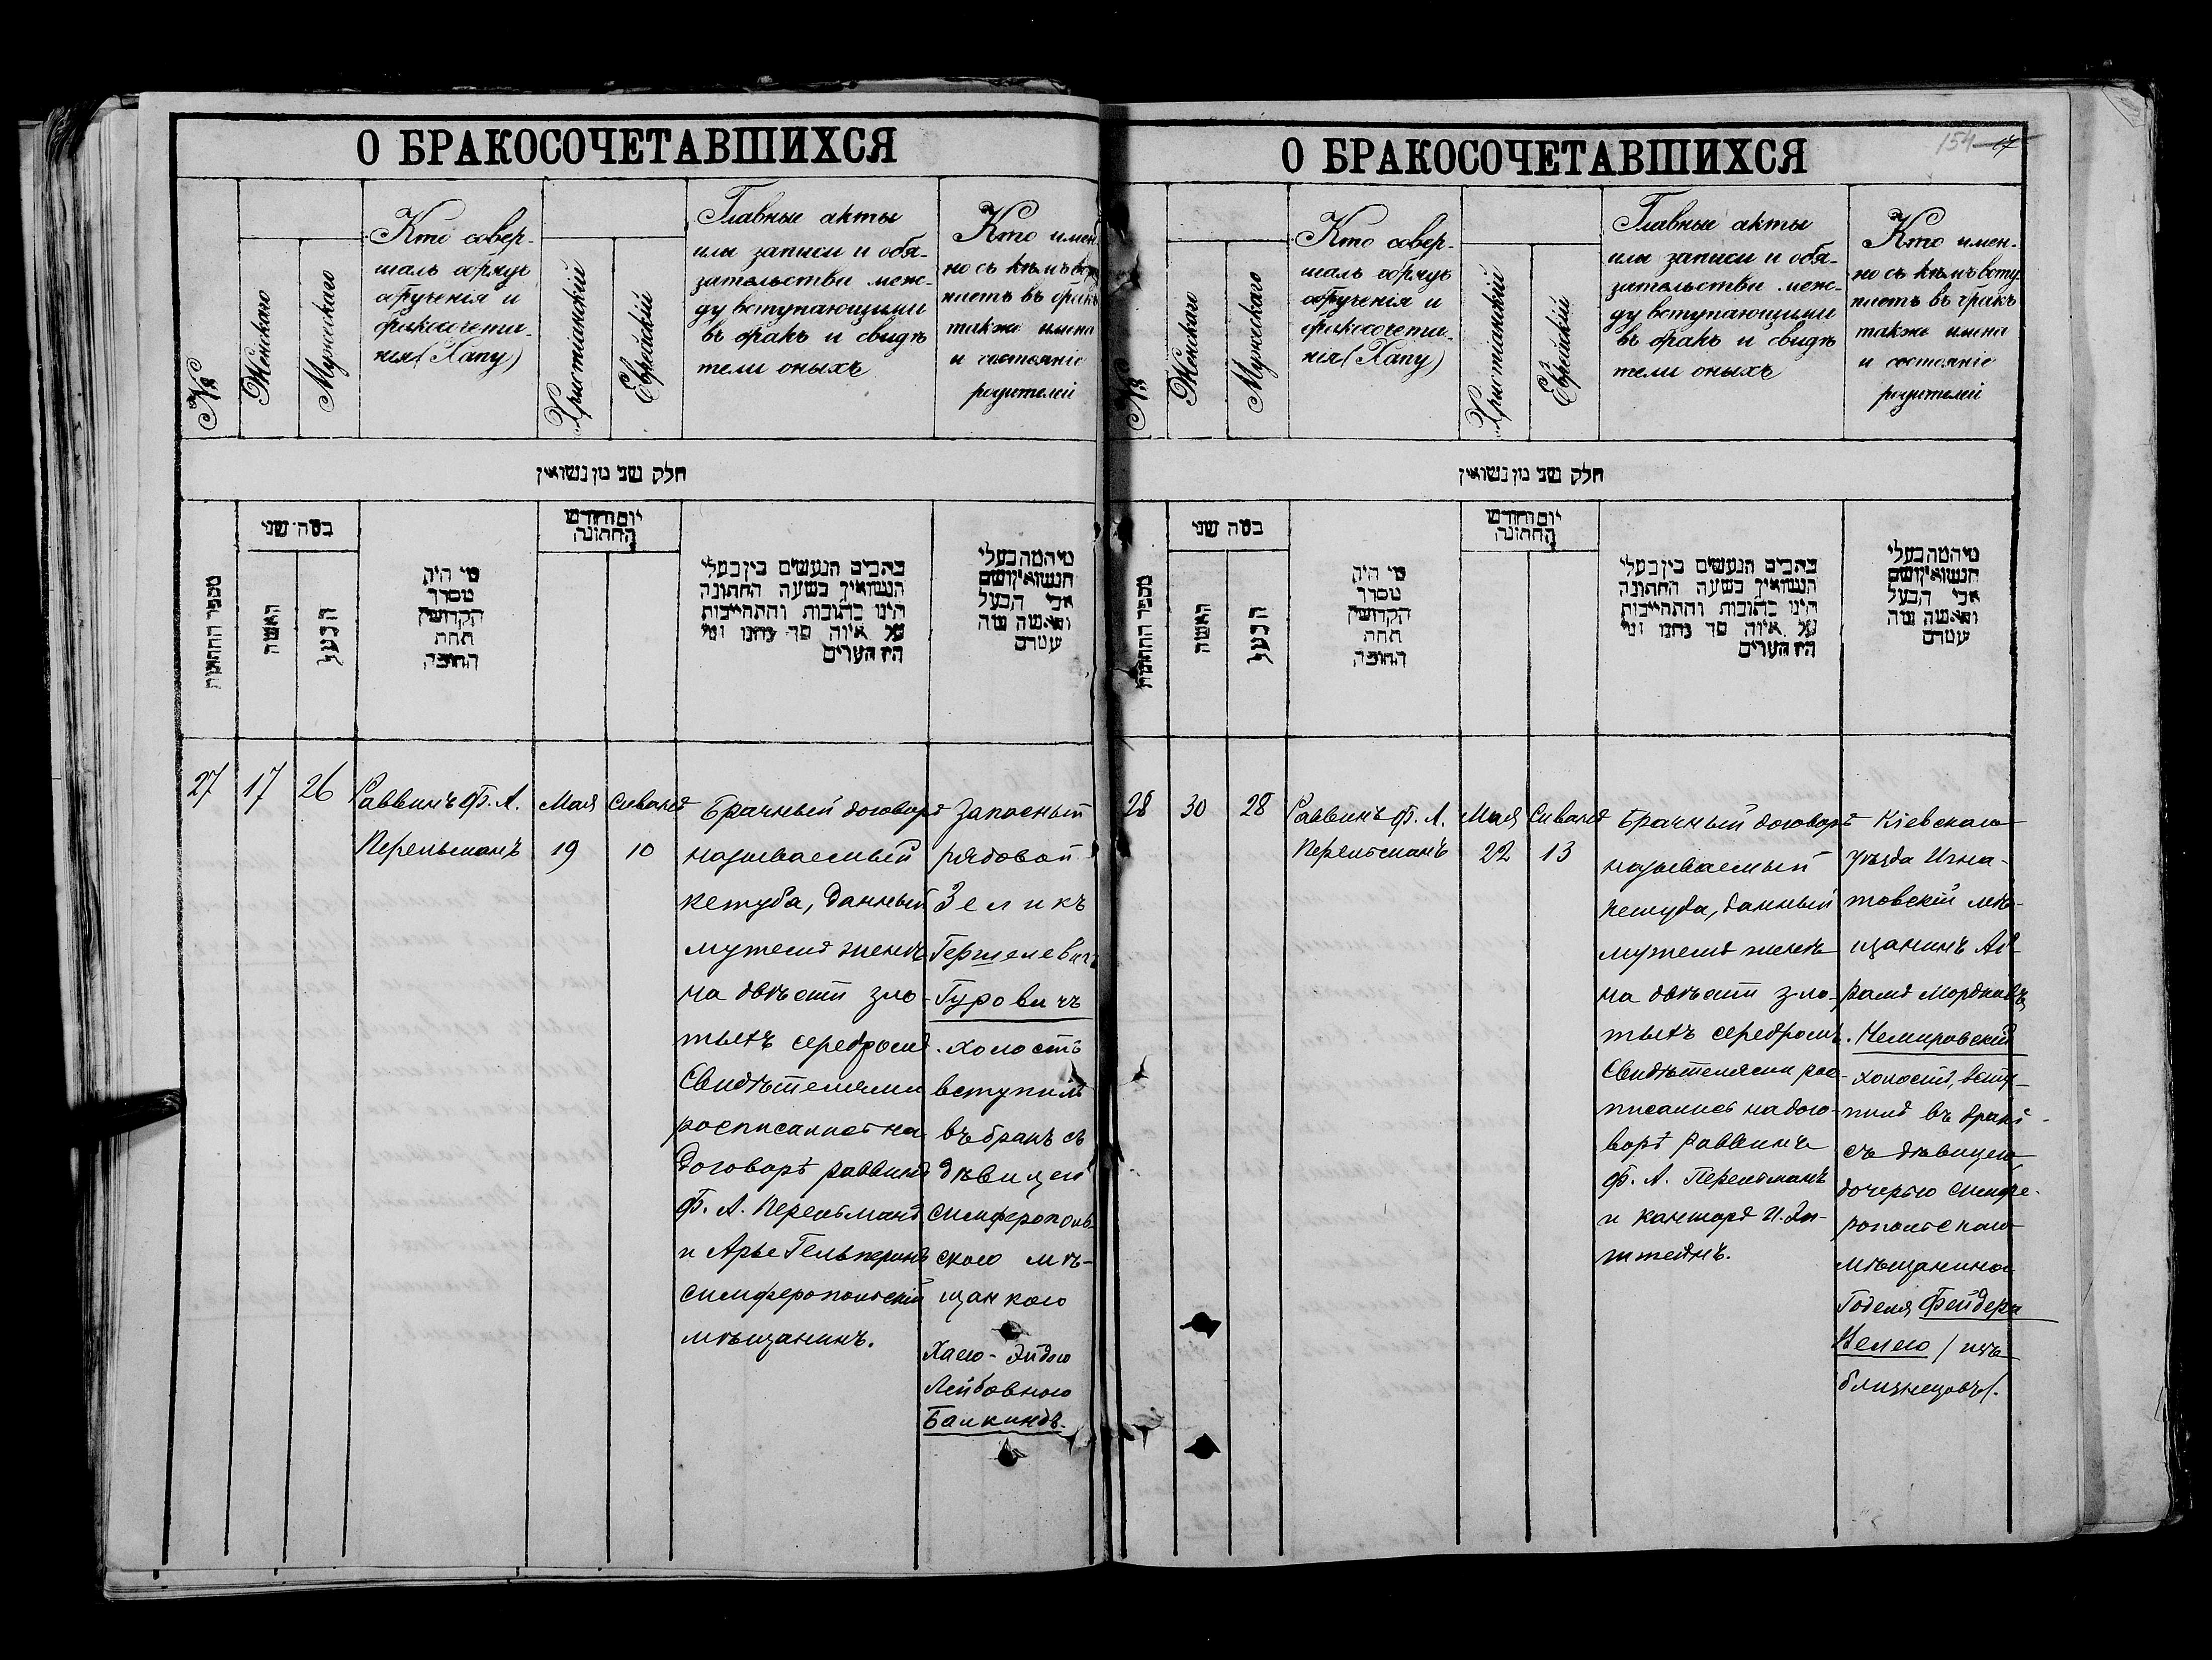 О БРАКОСОЧЕТАВШИХСЯ
№
Женскаго
Мужескаго
Кто совер-
шалъ обрядъ
обрученія и
бракосочета-
нія (Хапу)
Христіанскій
Еврейскій
Главные акты
или записи и обя-
зательства меж-
ду вступающими
въ бракъ и свидѣ
тели оныхъ
Кто имен
но съ кѣмъ всту
паетъ въ бракъ
также имена
и состояніе
родителей
חלק שני מן נשואין
מספר החתונות
בטה שני
האשה
הבעל
מי היה
מסדר
הקדושין
תחת
החופה
יום וחודש
החתונה
כתבים הנעשים בין בעלי
הנשואין בשעה החתונה
היינו כתובות והתחייבות
על איזה סך נתנו ומי
היו הערים
מי המה בעלי
הנשואין ושם
אבי הבעל
והאשה מה
עטרם
27
17
26
Раввинъ Ф. А.
Перельманъ
Мая
19
Сиванъ
10
Брачный договоръ
называемый
кетуба, данный
мужемъ женѣ
на двѣсти зло-
тыхъ серебромъ.
Свидѣтелями
росписались на
договорѣ раввинъ
Ф. А. Перельманъ
и Арье Гельперинъ
симферопольскій
мѣщанинъ.
Запасный
рядовой
Зеликъ
Гершелевичъ
Гуровичъ
холостъ
вступилъ
въ бракъ съ
дѣвицей
симферополь-
скою мѣ-
щанкою
Хаею-Эйдою
Лейбовною
Балкиндъ.
О БРАКОСОЧЕТАВШИХСЯ
154 17
№
Женскаго
Мужескаго
Кто совер-
шалъ обрядъ
обрученія и
бракосочета-
нія (Хапу)
Христіанскій
Еврейскій
Главные акты
или записи и обя-
зательства меж-
ду вступающими
въ бракъ и свидѣ
тели оныхъ
Кто имен-
но съ кѣмъ всту
паетъ въ бракъ
также имена
и состояніе
родителей
חלק שני מן נשואין
מספר החתונות
בטה שני
האשה
הבעל
מי היה
מסדר
הקדושין
תחת
החופה
יום וחודש
החתונה
כתבים הנעשים בין בעלי
הנשואין בשעה החתונה
היינו כתובות והתחייבות
על איזה סך נתנו ומי
היו הערים
מי המה בעלי
הנשואין ושם
אבי הבעל
והאשה מה
עטרם
28
30
28
Раввинъ Ф. А.
Перельманъ
Мая
22
Сиванъ
13
Брачный договоръ
называемый
кетуба, данный
мужемъ женѣ
на двѣсти зло-
тыхъ серебромъ.
Свидѣтелями рос-
писались на дого-
ворѣ раввинъ
Ф. А. Перельманъ
и канторъ И. Эп-
штейнъ.
Кіевскаго
уѣзда Игна-
товскій мѣ-
щанинъ Аб-
рамъ Мордковъ
Немировскій
холостъ, всту-
пилъ въ бракъ
съ дѣвицею
дочерью симфе-
ропольскаго
мѣщанина
Годеля Фейдера
Нелею /изъ
близнецовъ/.